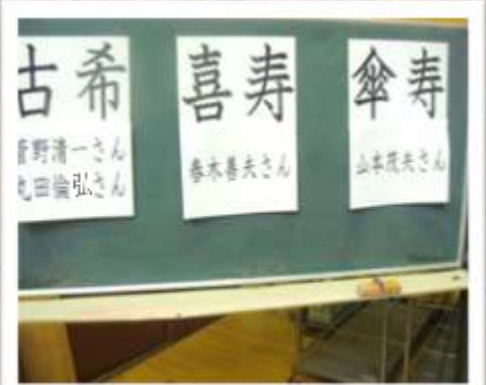 古希
菅野清一さん
丸田倫弘さん
喜寿
春木善夫さん
傘寿
山本茂夫さん